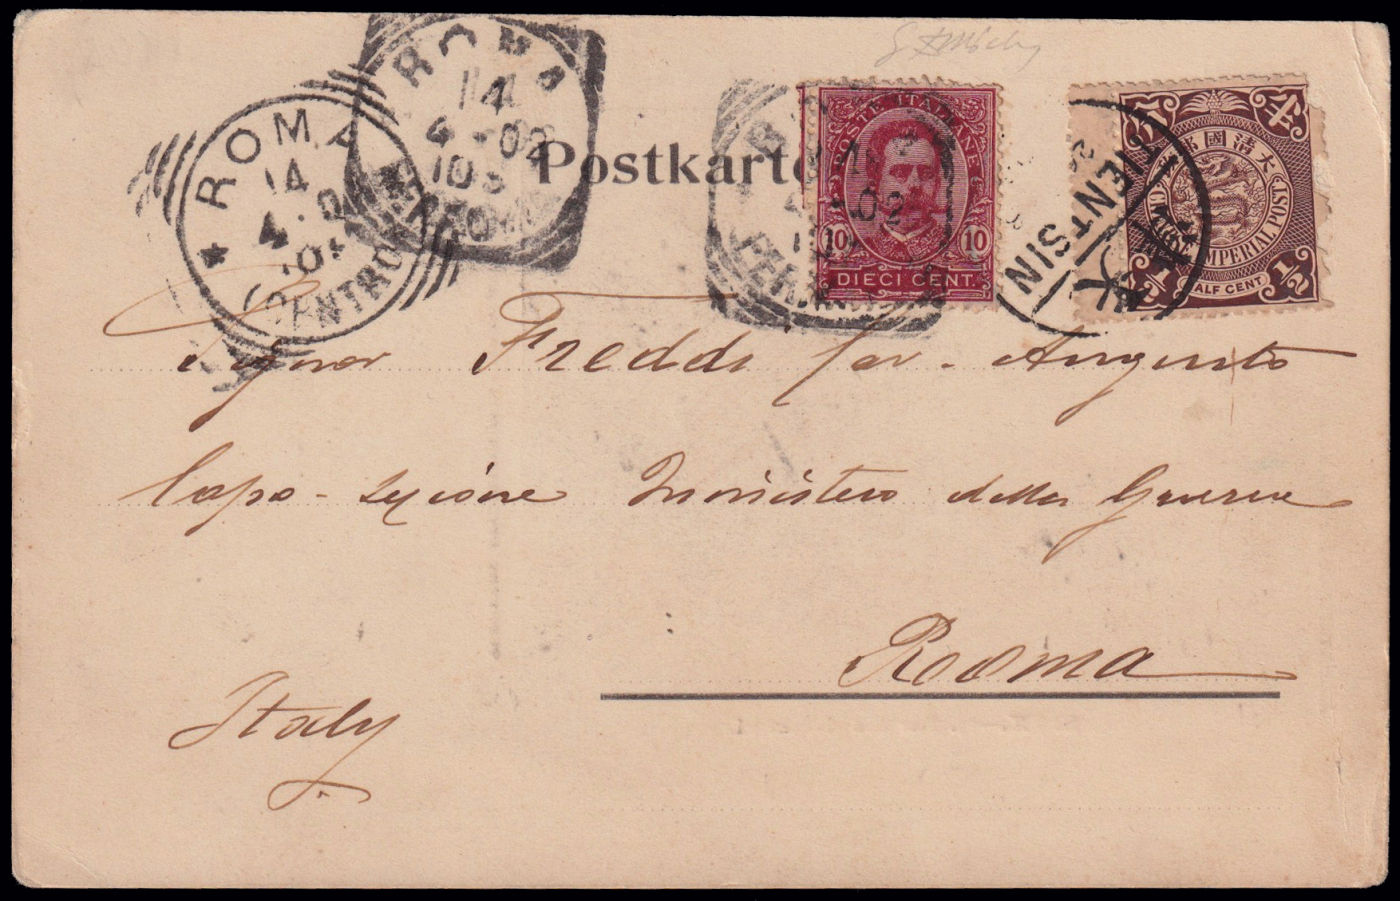 ROMA
14
4-02
10S
ROMA
14
CENTRO
Postkarte
POSTE ITALIANE
10 10
DIECI CENT.
02
TIENTSIN
大清國郵
IMPERIAL POST
½ ½
HALF CENT
Signor Freddi Cav. Augusto
Capo-sezione Ministero della Guerra
Roma
Italy